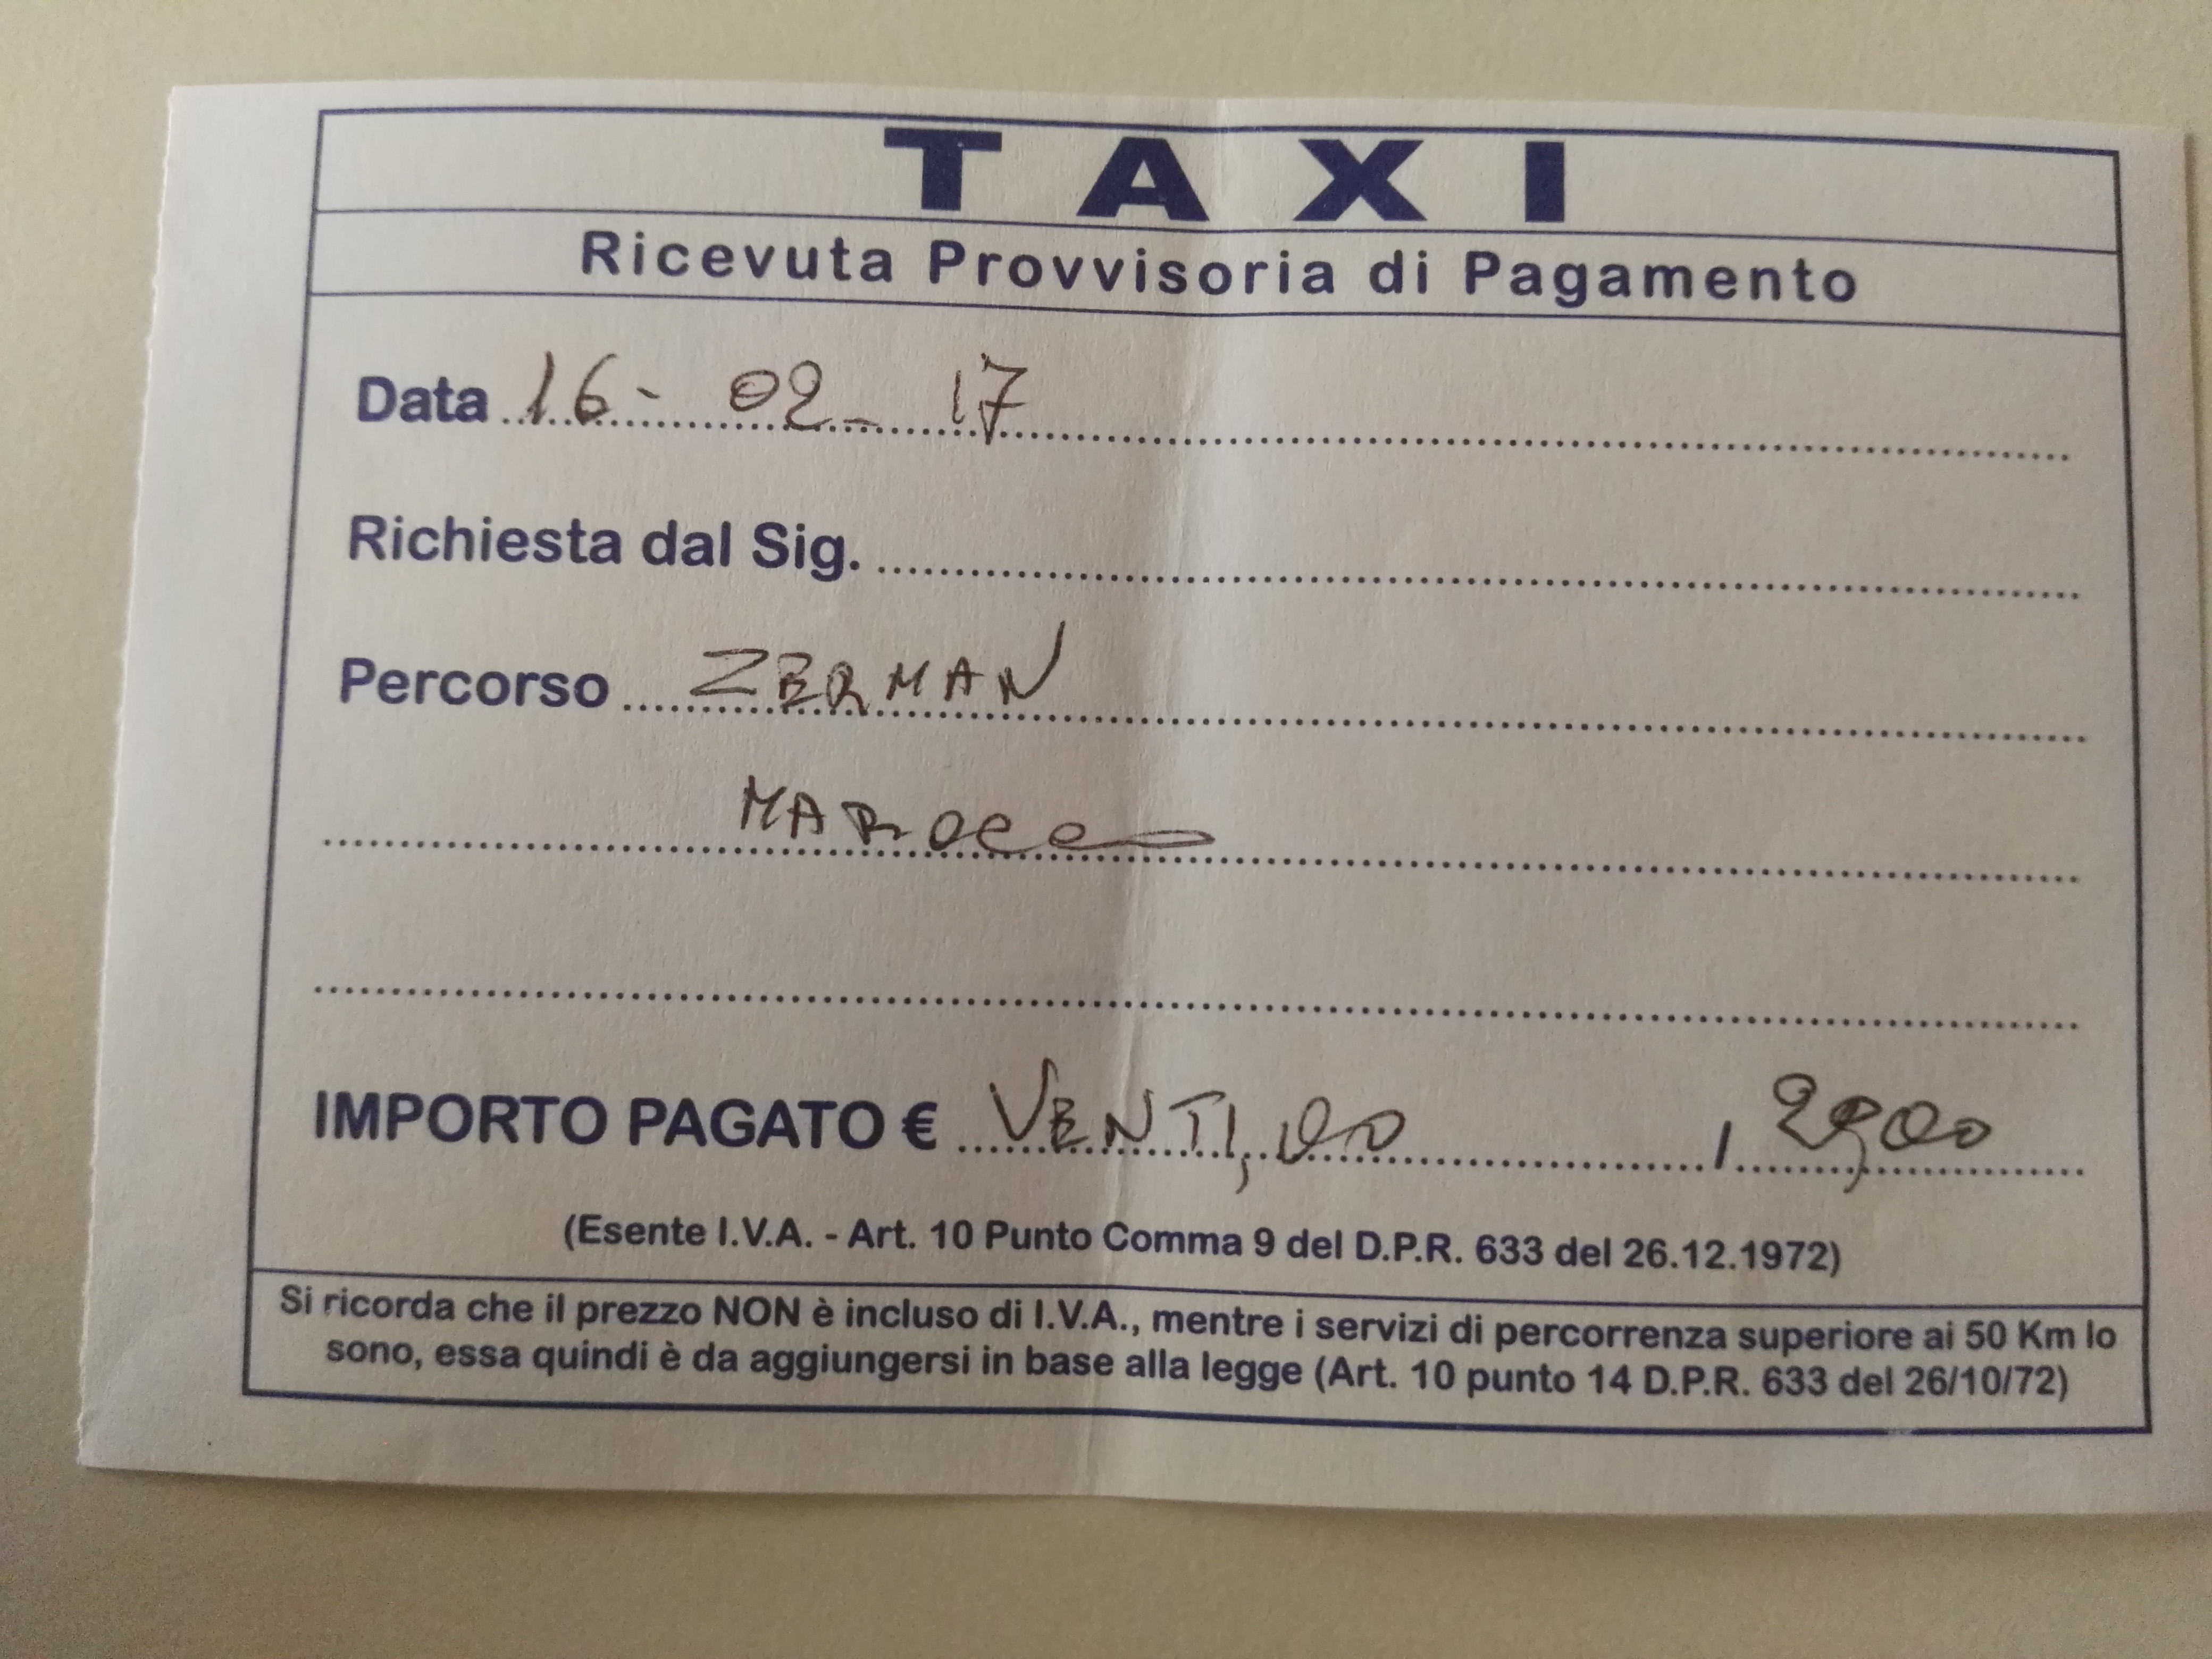 TAXI
Ricevuta Provvisoria di Pagamento
Data 16 - 02 - 17
Richiesta dal Sig.
Percorso ZERMAN
MAROCCO
IMPORTO PAGATO € VENTI,00 , 20,00
(Esente I.V.A. - Art. 10 Punto Comma 9 del D.P.R. 633 del 26.12.1972)
Si ricorda che il prezzo NON è incluso di I.V.A., mentre i servizi di percorrenza superiore ai 50 Km lo
sono, essa quindi è da aggiungersi in base alla legge (Art. 10 punto 14 D.P.R. 633 del 26/10/72)